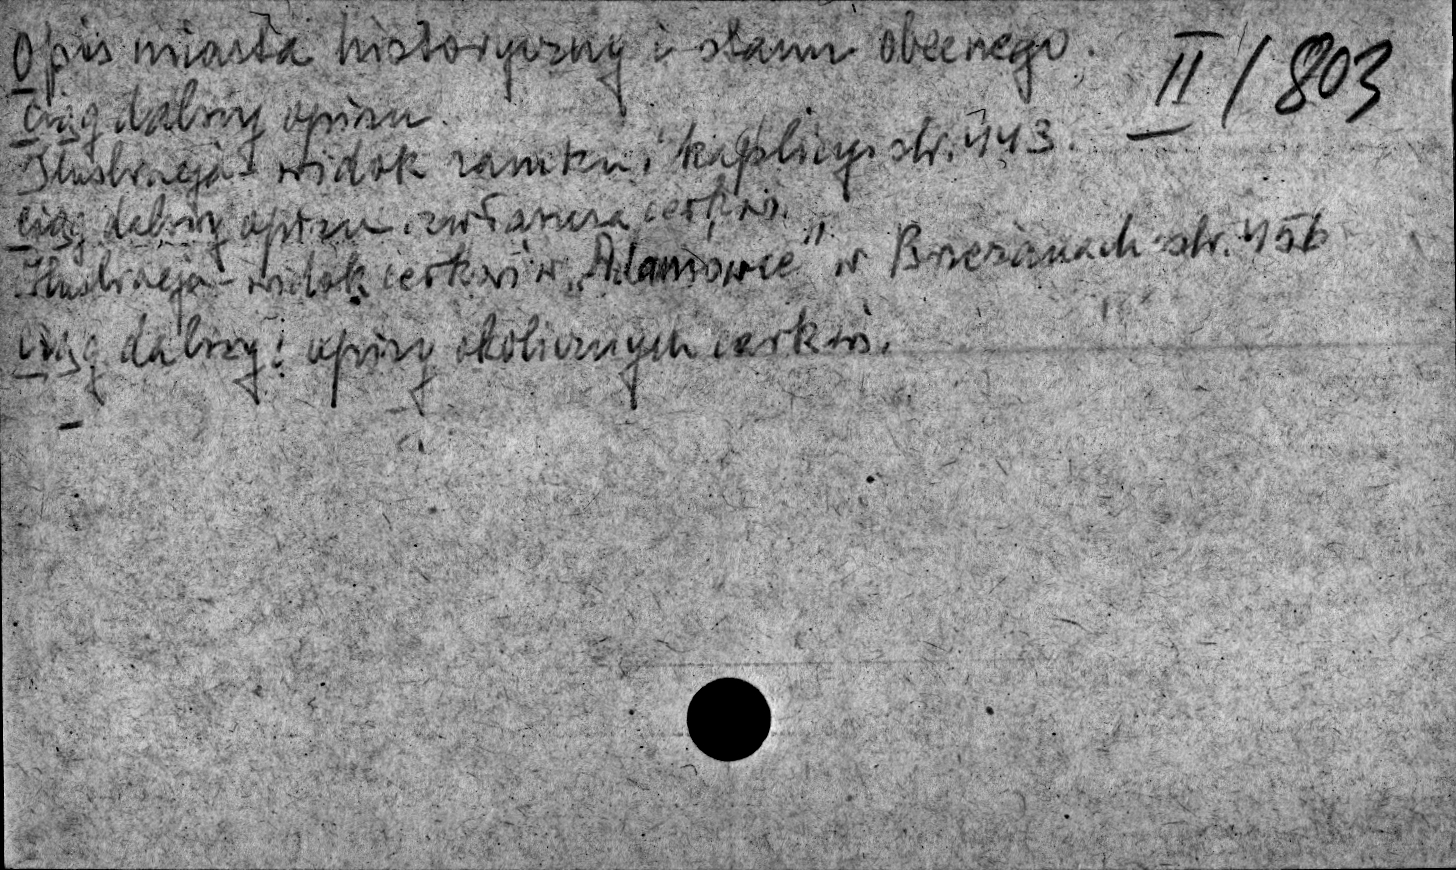 Opis miasta historyczny i stanu obecnego. II/803
ciąg dalszy opisu.
Ilustracja - widok zamku i kaplicy str. 443.
ciąg dalszy opisu zwłaszcza cerkwi.
Ilustracja - widok cerkwi w "Adamówce" w Brzeżanach str. 456
ciąg dalszy: opisy okolicznych cerkwi.